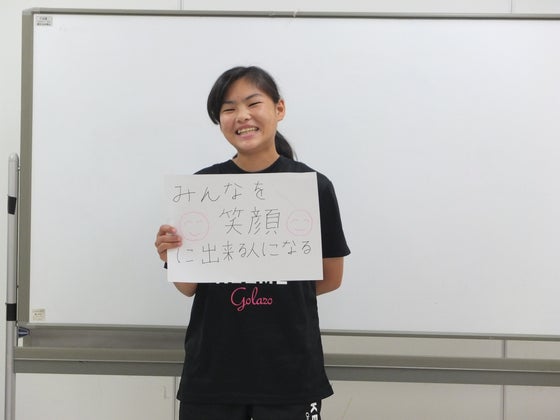 みんなを
笑顔
に出来る人になる
Golazo